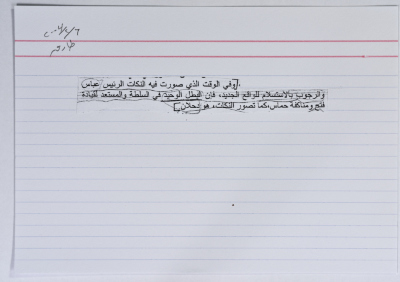 طارق
.[وفي الوقت الذي صورت فيه النكات الرئيس عباس
والرجوب بالاستسلام للواقع الجديد، فإن البطل الوحيد في السلطة والمستعد لقيادة
فتح ومناكفة حماس،كما تصور النكات، هو دحلان]